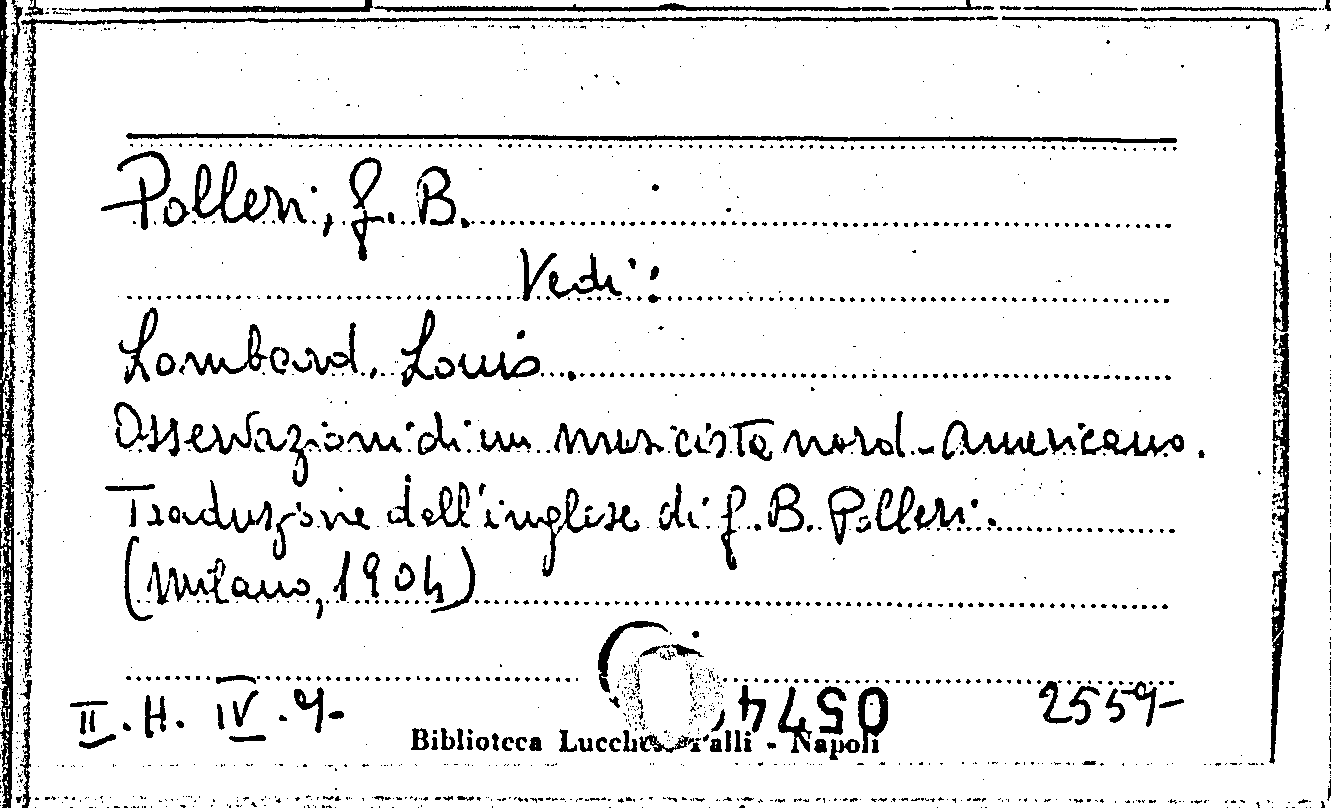 Polleri, G. B.
Vedi:
Lombard, Louis.
Osservazioni di un musicista nord-americano.
Traduzione dall'inglese di G. B. Polleri.
(Milano, 1904)
II. H. IV. 9-
0574
2559-
Biblioteca Lucchesi Palli - Napoli